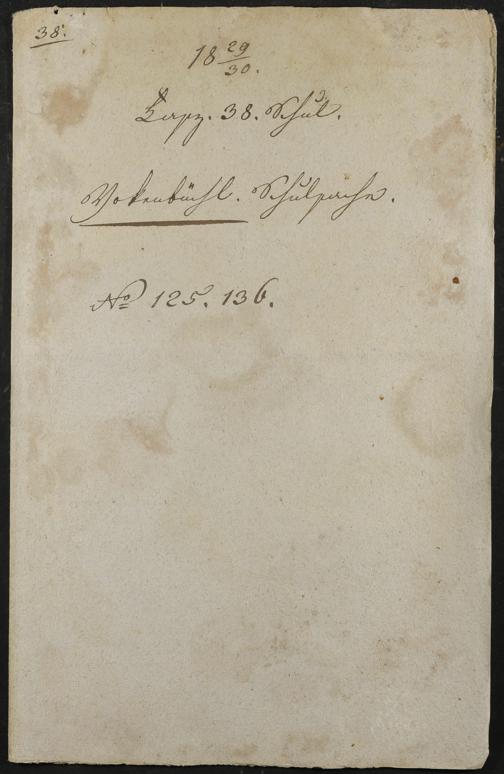 38.
18 29/30.
Harz. 38. Schul.
Vokenbüchl. Schulsache.
No 125. 136.